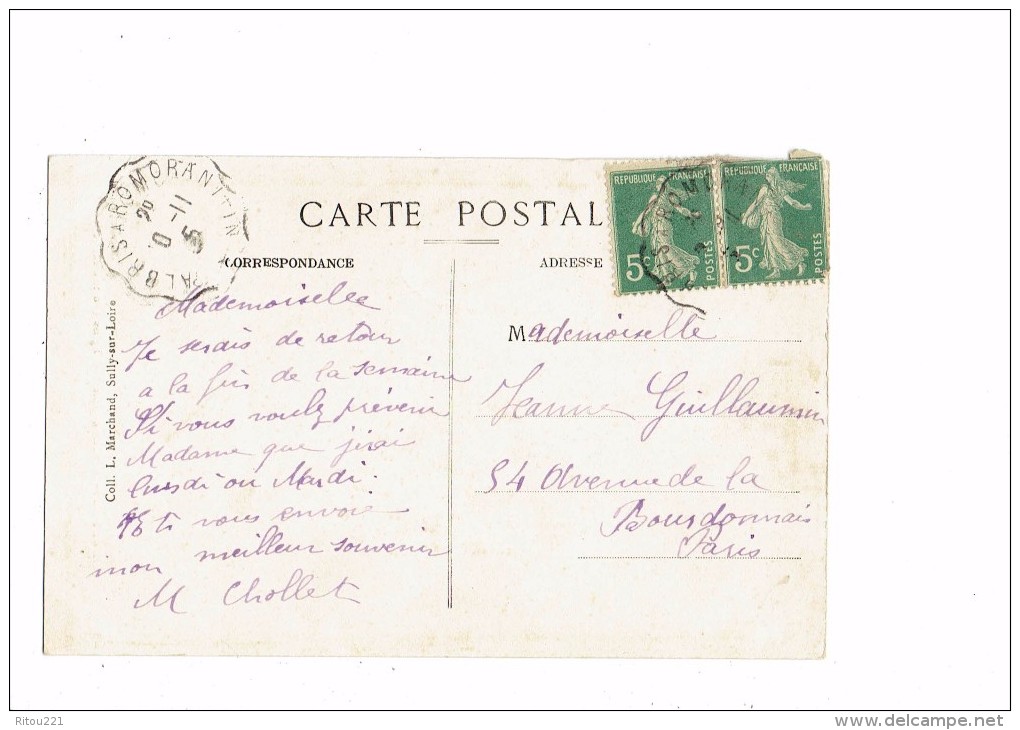 SALBRIS A ROMORANTIN
20
10 -11
15
CARTE POSTALE
CORRESPONDANCE
ADRESSE
REPUBLIQUE FRANÇAISE
5c
POSTES
REPUBLIQUE FRANÇAISE
5c
POSTES
Coll. L. Marchand, Sully-sur-Loire
Mademoiselle
Je serais de retour
a la fin de la semaine
Si vous voulez prévenir
Madame que j'irai
lundi ou Mardi.
vous envoie
mon meilleur souvenir
M Chollet
Mademoiselle
Jeanne Guillaumin
54 Avenue de la
Bourdonnais
Paris
Ritou221
http://www.delcampe.net